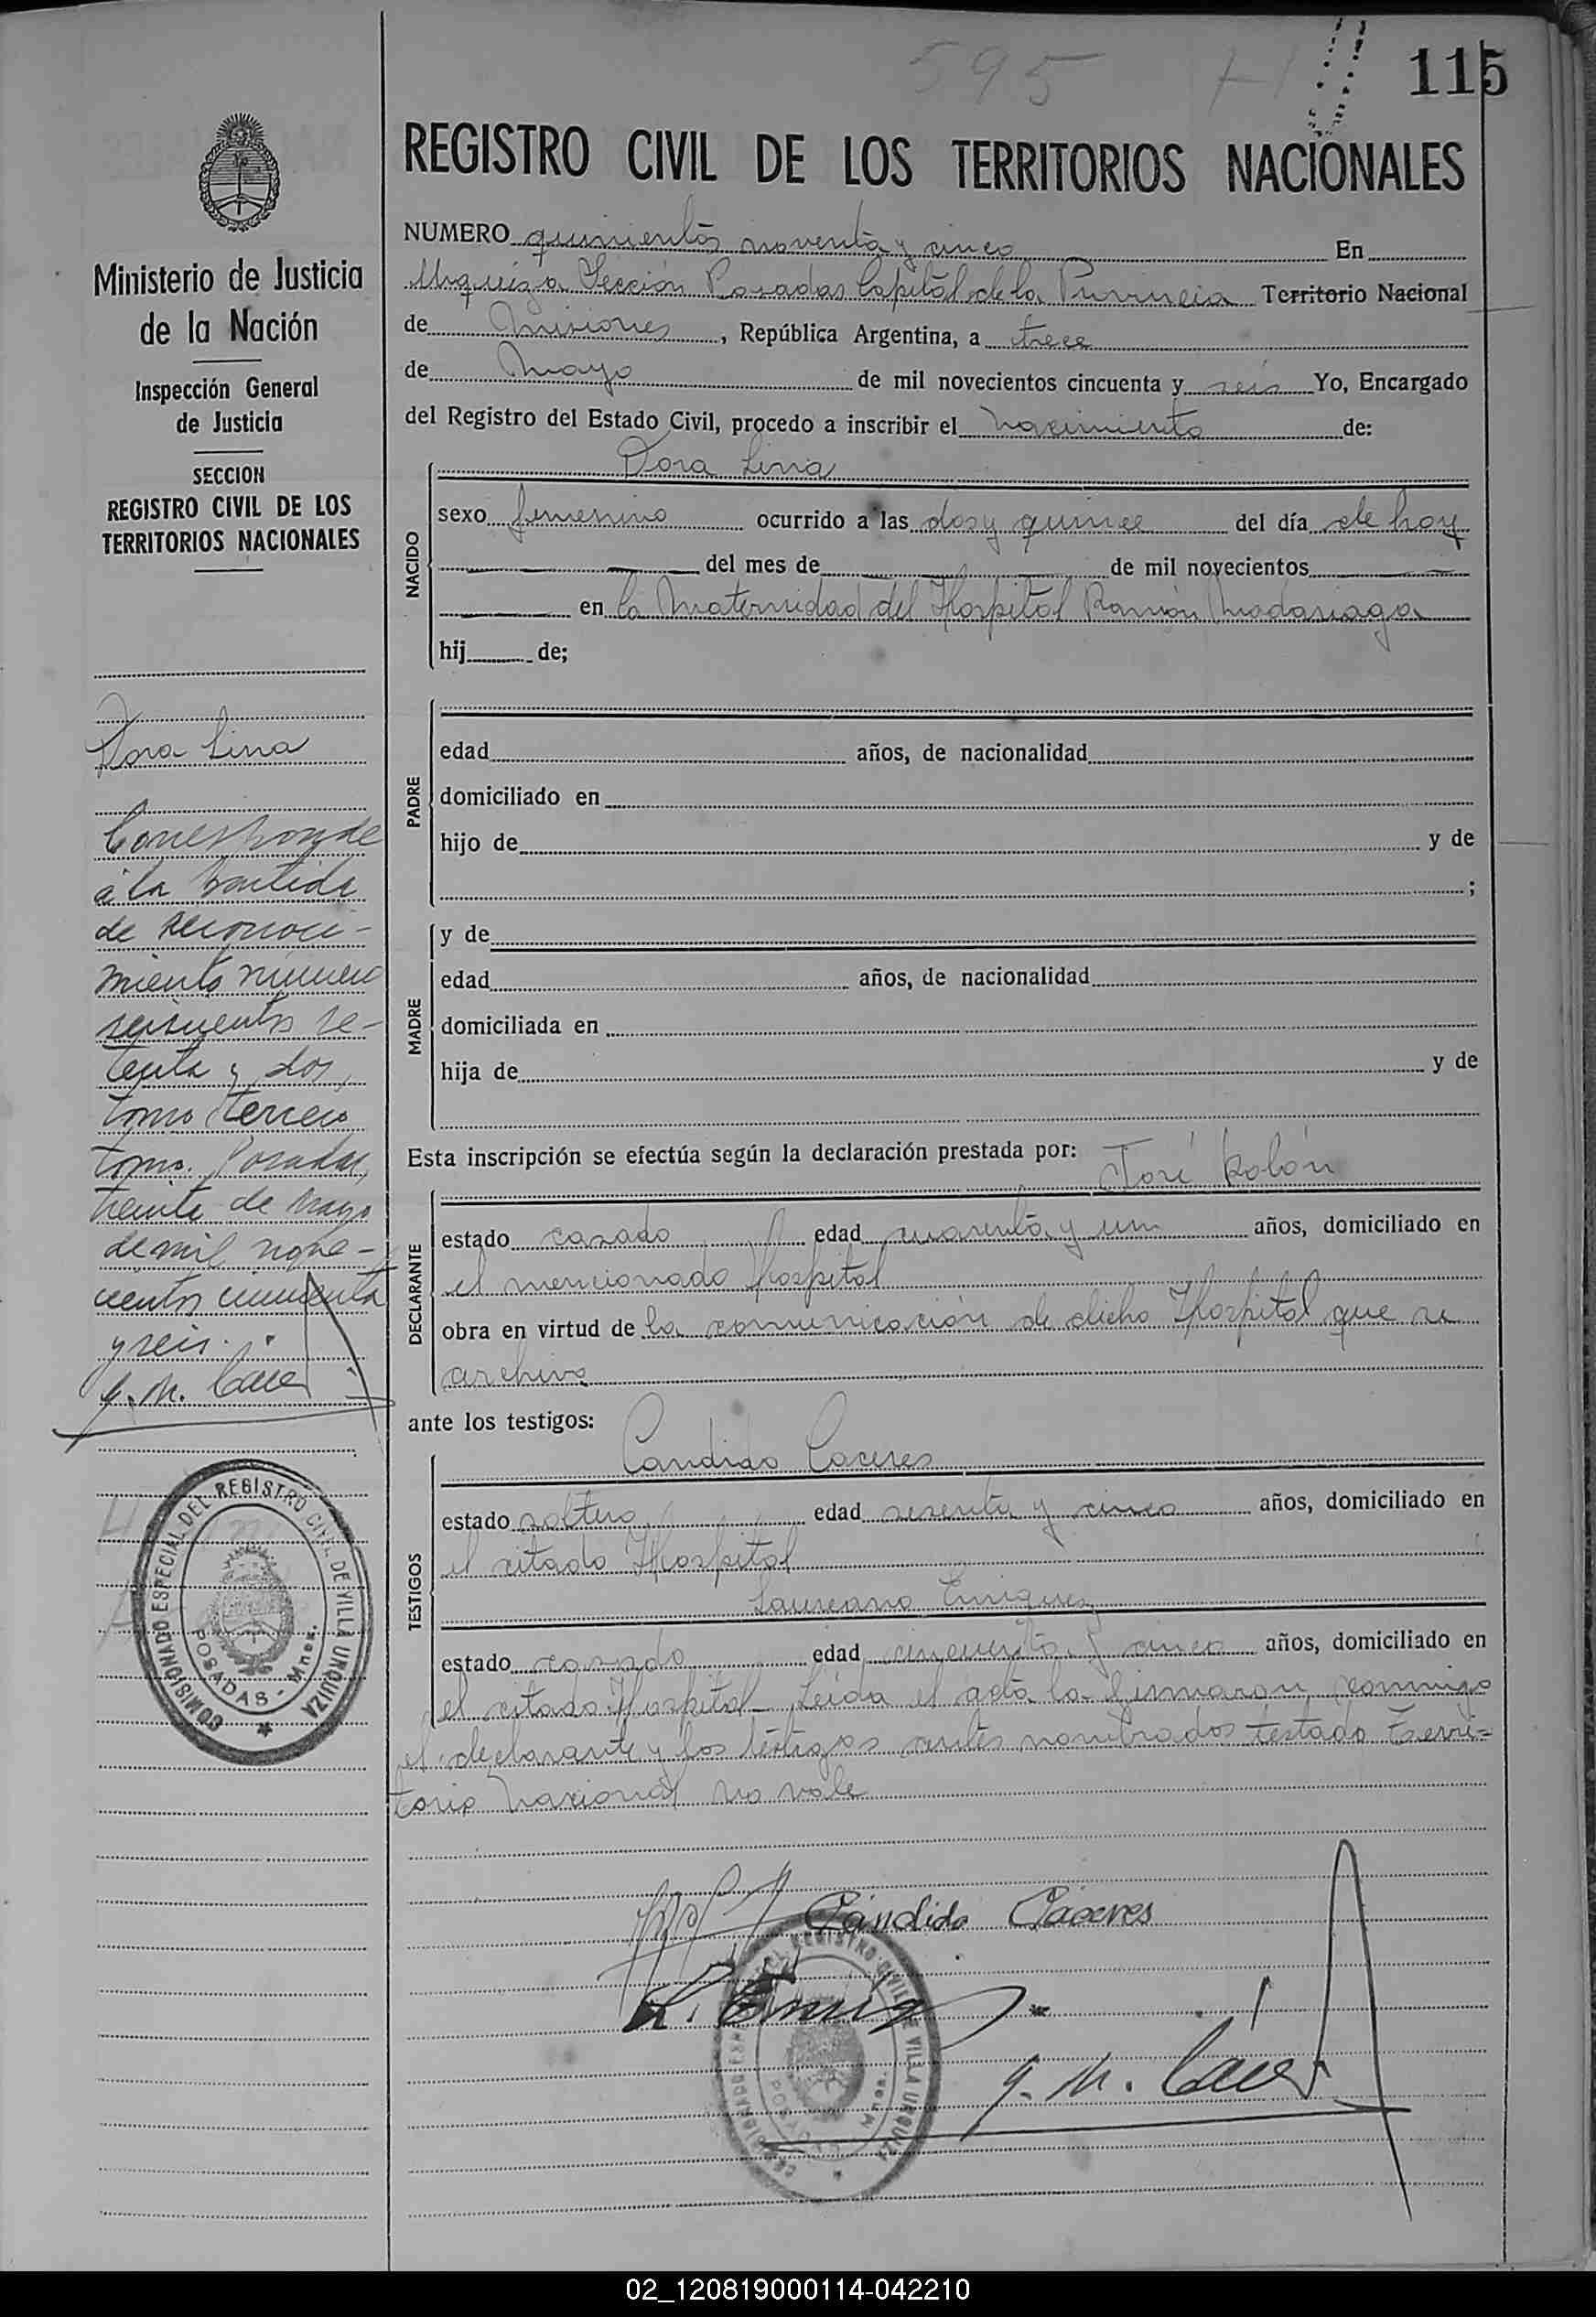 595
115
REGISTRO CIVIL DE LOS TERRITORIOS NACIONALES
Ministerio de Justicia
de la Nación
Inspección General
de Justicia
SECCION
REGISTRO CIVIL DE LOS
TERRITORIOS NACIONALES
Dora Lina
Corresponde
a la partida
de reconoci-
miento número
seiscientos se-
tenta y dos,
tomo tercero
Posadas,
treinta de Mayo
de mil nove-
cientos cincuenta
y seis.
COMISIONADO ESPECIAL DEL REGISTRO CIVIL DE VILLA URQUIZA
POSADAS - Mnes.
NUMERO quinientos noventa y cinco En
Urquiza Sección Posadas Capital de la Provincia Territorio Nacional
de Misiones, República Argentina, a trece
de Mayo de mil novecientos cincuenta y seis Yo, Encargado
del Registro del Estado Civil, procedo a inscribir el nacimiento de:
Dora Lina
NACIDO
sexo femenino ocurrido a las dos y quince del día de hoy
del mes de de mil novecientos
en la Maternidad del Hospital Ramón Madariaga
hij de;
PADRE
edad años, de nacionalidad
domiciliado en
hijo de y de
;
MADRE
y de
edad años, de nacionalidad
domiciliada en
hija de y de
Esta inscripción se efectúa según la declaración prestada por: José Kolón
DECLARANTE
estado casado edad cuarenta y un años, domiciliado en
el mencionado Hospital
obra en virtud de la comunicación de dicho Hospital que se
archiva
ante los testigos:
Candido Caceres
TESTIGOS
estado soltero edad sesenta y cinco años, domiciliado en
el citado Hospital
Laureano Enriquez
estado casado edad cincuenta y cinco años, domiciliado en
el citado Hospital Leida el acta la firmaron conmigo
el declarante y los testigos antes nombrados testado Terri=
torio Nacional no vale
Cándido Cáceres
02_120819000114-042210